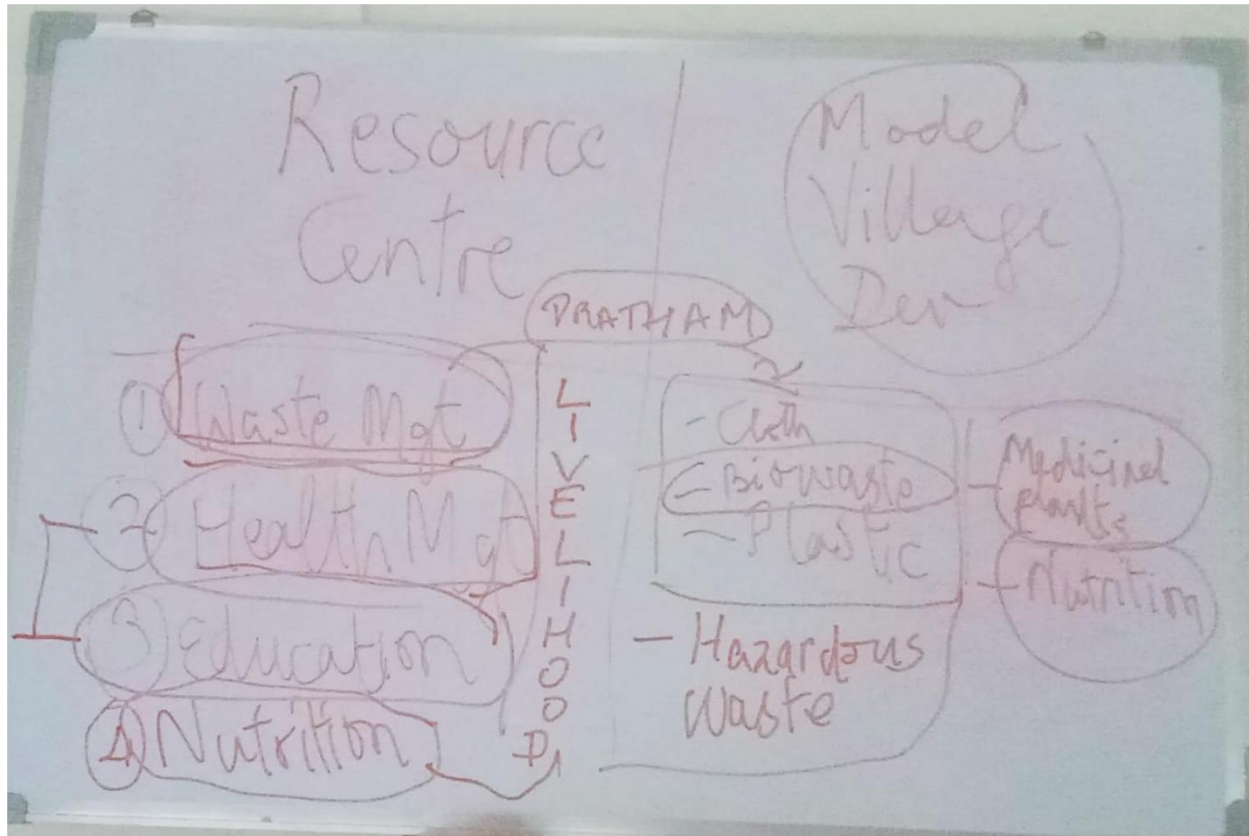 Resource
Centre
Model
Village
Dev
PRATHAM
1 Waste Mgt
2 Health Mgt
3 Education
4 Nutrition
LIVELIHOOD
- Cloth
- Biowaste
- Plastic
- Hazardous
Waste
- Medicinal
plants
- Nutrition